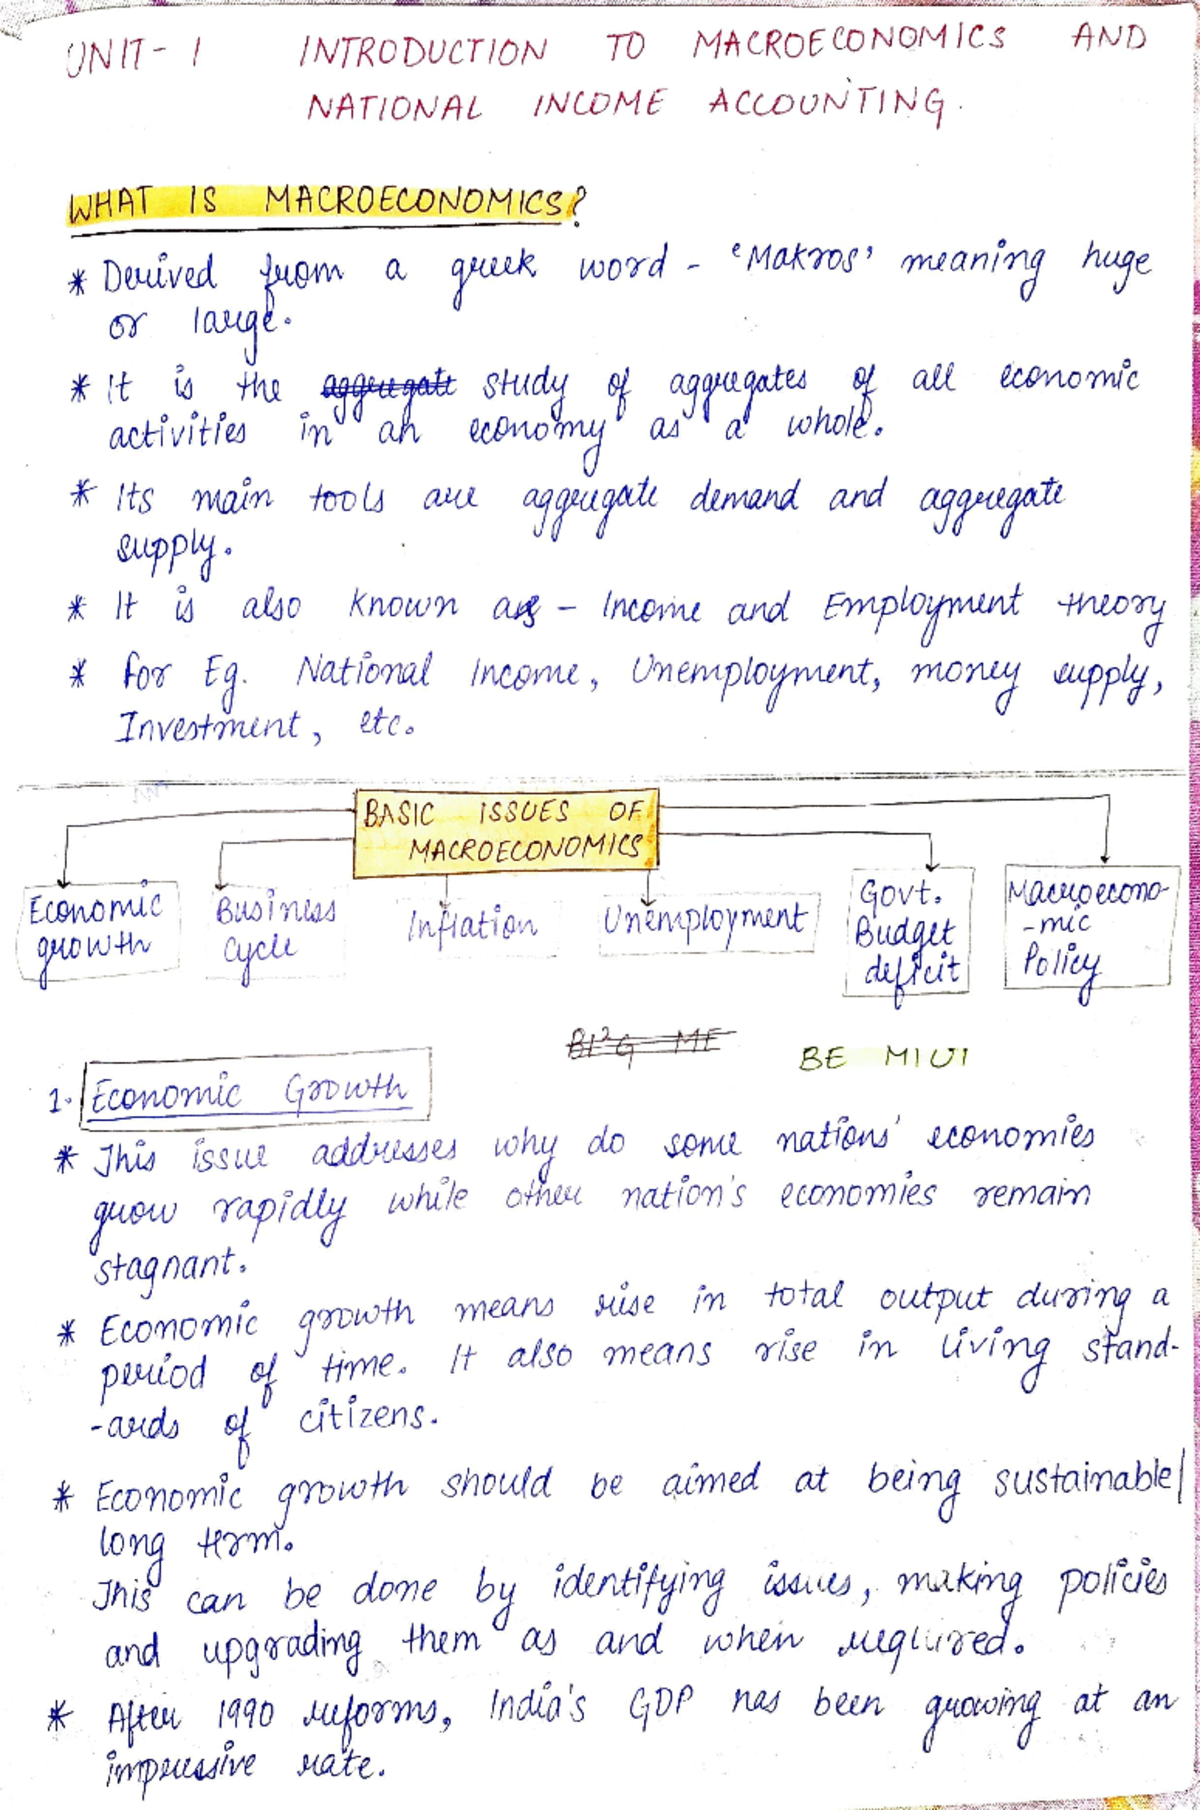 UNIT- 1 INTRODUCTION TO MACROECONOMICS AND
NATIONAL INCOME ACCOUNTING.
WHAT IS MACROECONOMICS?
* Derived from a greek word - 'Makros' meaning huge
or large.
* It is the aggregate study of aggregates of all economic
activities in an economy as a whole.
* Its main tools are aggregate demand and aggregate
supply.
* It is also known as - Income and Employment theory
* for Eg. National Income, Unemployment, money supply,
Investment, etc.
BASIC ISSUES OF
MACROECONOMICS
Economic
growth
Business
cycle
Inflation
Unemployment
Govt.
Budget
deficit
Macroecono-
-mic
Policy
BE MIUI
1. Economic Growth
* This issue addresses why do some nations' economies
grow rapidly while other nation's economies remain
stagnant.
* Economic growth means rise in total output during a
period of time. It also means rise in living stand-
-ards of citizens.
* Economic growth should be aimed at being sustainable/
long term.
This can be done by identifying issues, making policies
and upgrading them as and when required.
* After 1990 reforms, India's GDP has been growing at an
impressive rate.